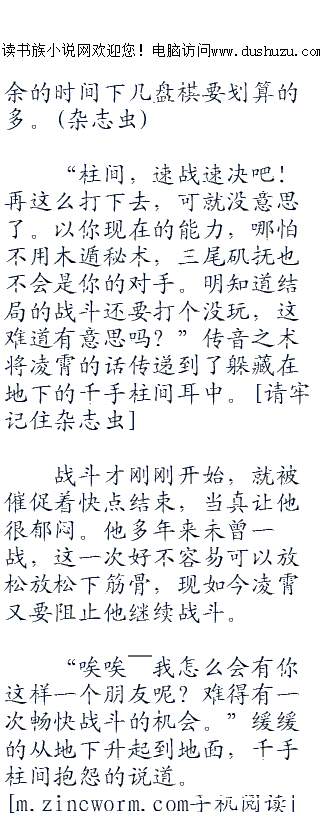 读书族小说网欢迎您！电脑访问www.dushuzu.com
余的时间下几盘棋要划算的
多。(杂志虫)
“柱间，速战速决吧！
再这么打下去，可就没意思
了。以你现在的能力，哪怕
不用木遁秘术，三尾矶抚也
不会是你的对手。明知道结
局的战斗还要打个没玩，这
难道有意思吗？”传音之术
将凌霄的话传递到了躲藏在
地下的千手柱间耳中。[请牢
记住杂志虫]
战斗才刚刚开始，就被
催促着快点结束，当真让他
很郁闷。他多年来未曾一
战，这一次好不容易可以放
松放松下筋骨，现如今凌霄
又要阻止他继续战斗。
“唉唉——我怎么会有你
这样一个朋友呢？难得有一
次畅快战斗的机会。”缓缓
的从地下升起到地面，千手
柱间抱怨的说道。
[m.zincworm.com手机阅读]